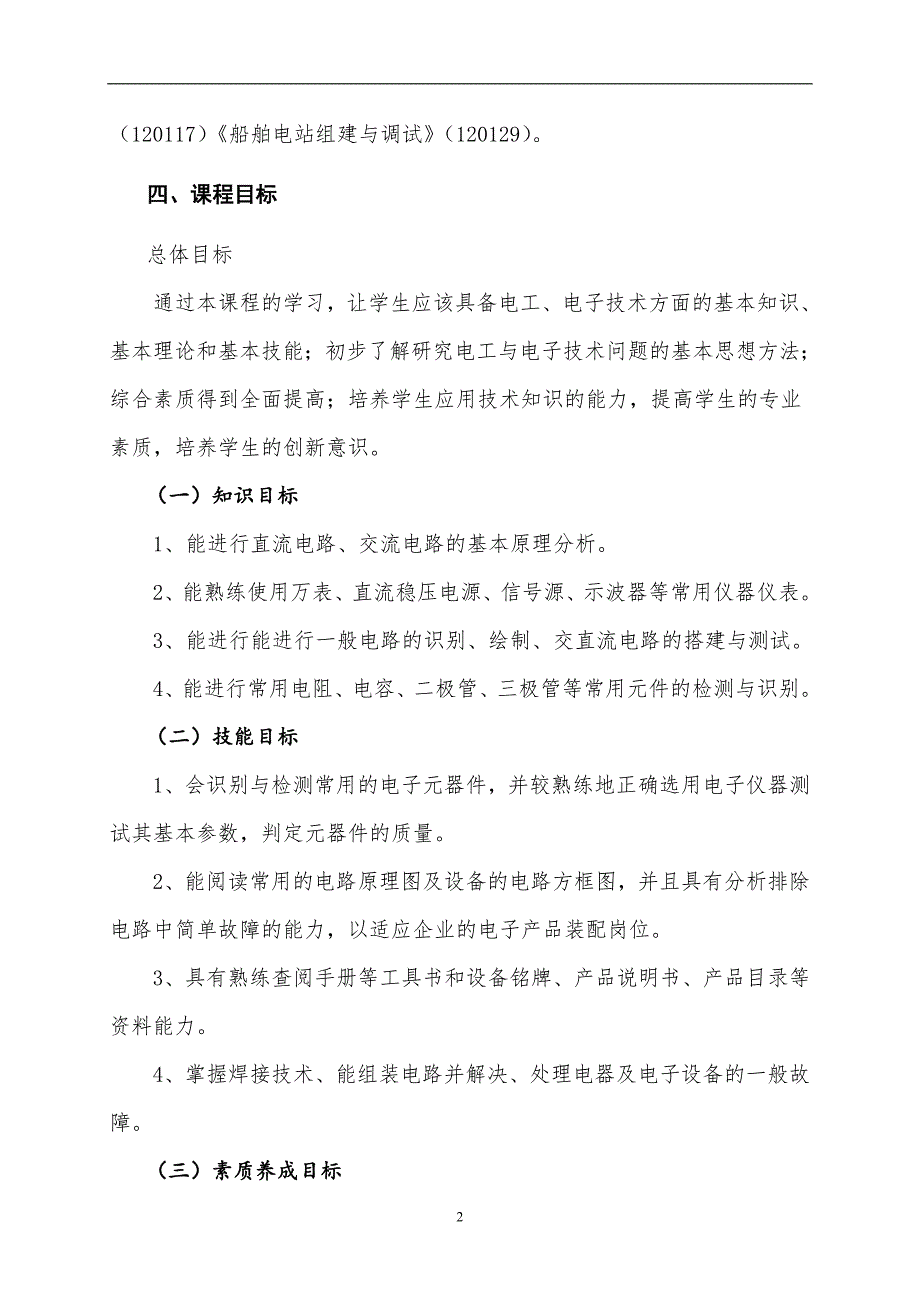 （120117）《船舶电站组建与调试》（120129）。
四、课程目标
总体目标
通过本课程的学习，让学生应该具备电工、电子技术方面的基本知识、
基本理论和基本技能；初步了解研究电工与电子技术问题的基本思想方法；
综合素质得到全面提高；培养学生应用技术知识的能力，提高学生的专业
素质，培养学生的创新意识。
（一）知识目标
1、能进行直流电路、交流电路的基本原理分析。
2、能熟练使用万表、直流稳压电源、信号源、示波器等常用仪器仪表。
3、能进行能进行一般电路的识别、绘制、交直流电路的搭建与测试。
4、能进行常用电阻、电容、二极管、三极管等常用元件的检测与识别。
（二）技能目标
1、会识别与检测常用的电子元器件，并较熟练地正确选用电子仪器测
试其基本参数，判定元器件的质量。
2、能阅读常用的电路原理图及设备的电路方框图，并且具有分析排除
电路中简单故障的能力，以适应企业的电子产品装配岗位。
3、具有熟练查阅手册等工具书和设备铭牌、产品说明书、产品目录等
资料能力。
4、掌握焊接技术、能组装电路并解决、处理电器及电子设备的一般故
障。
（三）素质养成目标
2